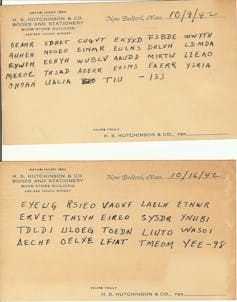 ESTABLISHED 1864
H. S. HUTCHINSON & CO.
BOOKS AND STATIONERY
BOOK STORE BUILDING
New Bedford, Mass. 10/9/42
SDRET CUGVT EKYXD FSBDE WWYTH
EINMR EULNS DRLVH LDMDA
EEBYH WUBLV AAUDD MIRTW LIEAO
TRSAD AEEKR EOINS EAERR YSRIA
UALIA TIU - 133
YOURS TRULY
H. S. HUTCHINSON & CO., PER
ESTABLISHED 1864
H. S. HUTCHINSON & CO.
BOOKS AND STATIONERY
BOOK STORE BUILDING
New Bedford, Mass. 10/16/42
EYEUG RSIEO VAOXF LAELH ETNWR
ERVET TNSYH EIREO SYSDR YNUBI
TDLDI ULOEG TOEDN LIUTO WASOI
AECHF OELXE LFIAT TMEOM YEE-98
YOURS TRULY
H. S. HUTCHINSON & CO., PER